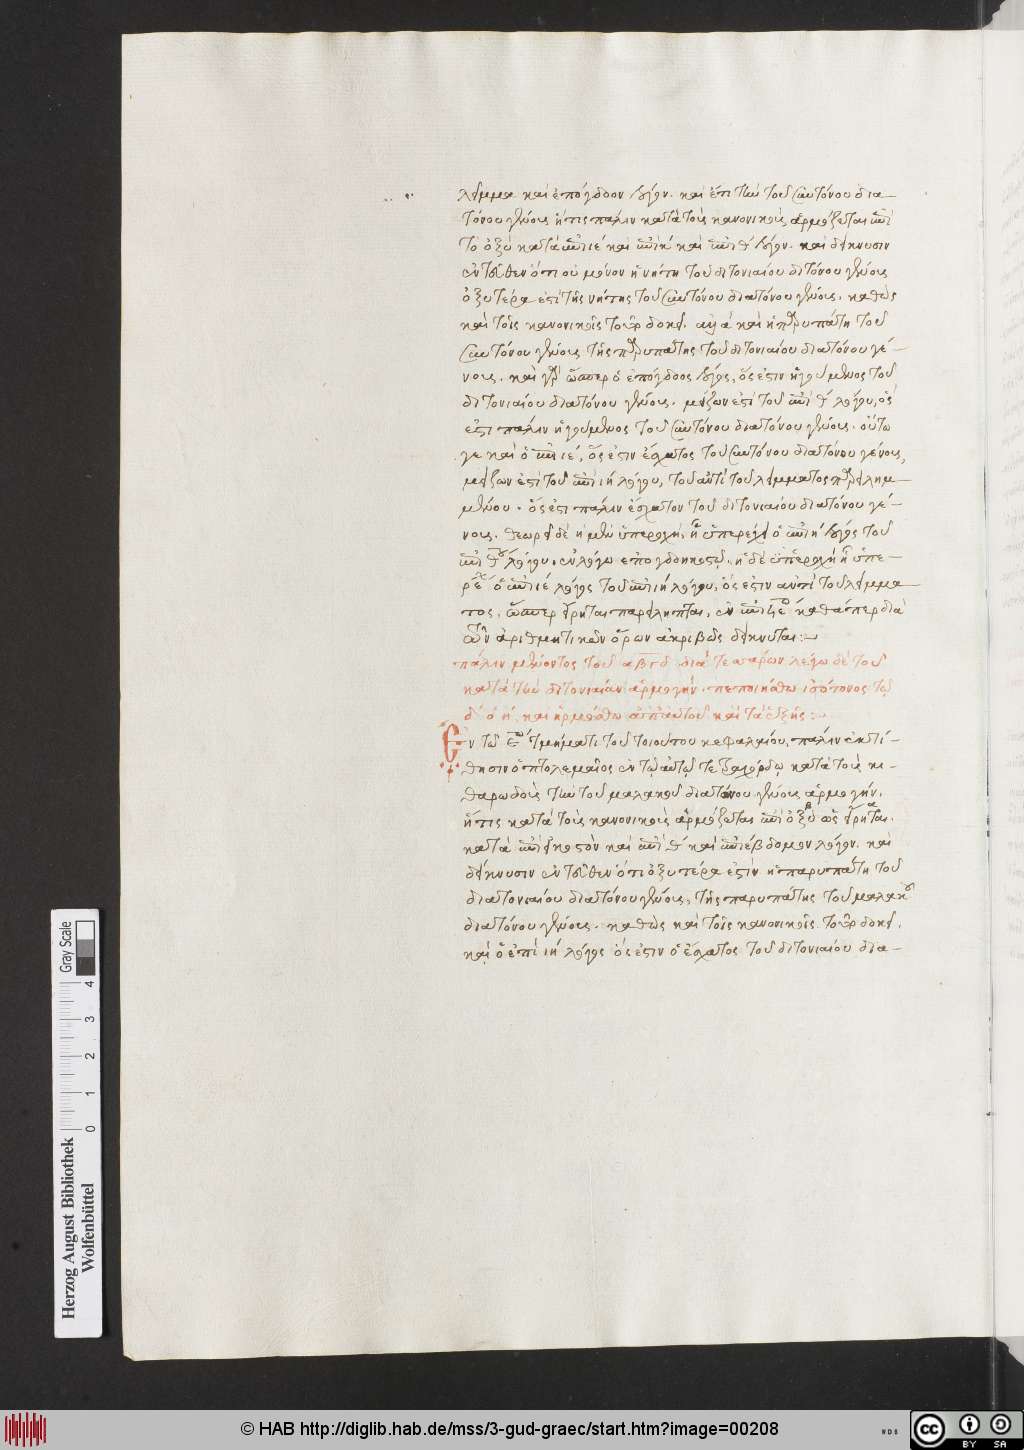 λεῖμμα καὶ ἐπόγδοον λόγον. καὶ ἐπὶ τὴν τοῦ συντόνου δια-
τόνου γένους ἥτις πάλιν κατὰ τοὺς κανονικοὺς ἁρμόζεται ἐπὶ
τὸ ὀξὺ κατὰ ἐπὶ ιέ καὶ ἐπὶ ή καὶ ἐπὶ θ λόγον. καὶ δείκνυσιν
ἐντεῦθεν ὅτι οὐ μόνον ἡ νήτη τοῦ διτονιαίου διτόνου γένους
ὀξυτέρα ἐστὶ τῆς νήτης τοῦ συντόνου διατόνου γένους. καθὼς
καὶ τοῖς κανονικοῖς τοῦτο δοκεῖ. ἀλλὰ καὶ ἡ παρυπάτη τοῦ
συντόνου γένους τῆς παρυπάτης τοῦ διτονιαίου διατόνου γέ-
νους. καὶ γὰρ ὥσπερ ὁ ἐπόγδοος λόγος, ὅς ἐστιν ἡγούμενος τοῦ
διτονιαίου διατόνου γένους. μείζων ἐστὶ τοῦ ἐπὶ θ λόγου, ὅς
ἐστι πάλιν ἡγούμενος τοῦ συντόνου διατόνου γένους. οὕτω
γε καὶ ὁ ἐπὶ ιέ, ὅς ἐστιν ἔσχατος τοῦ συντόνου διατόνου γένους,
μείζων ἐστὶ τοῦ ἐπὶ ιή λόγου, τοῦ ἀντὶ τοῦ λείμματος παρειλημ-
μένου. ὅς ἐστι πάλιν ἔσχατον τοῦ διτονιαίου διατόνου γέ-
νους. θεωρεῖ δὲ ἡ μὲν ὑπεροχή, ἣ ὑπερέχει ὁ ἐπὶ ή λόγος τοῦ
ἐπὶ θου λόγου, ἐν λόγῳ ἐπογδοηκοστῷ. ἡ δὲ ὑπεροχὴ ἣ ὑπε-
ρέχει ὁ ἐπὶ ιέ λόγος τοῦ ἐπὶ ιή λόγου, ὅς ἐστιν ἀντὶ τοῦ λείμμα-
τος, ὥσπερ εἴρηται παρείληπται, ἐν καθάπερ διὰ
τῶν ἀριθμητικῶν ὅρων ἀκριβῶς δείκνυται:
πάλιν μένοντος τοῦ αβγδ διὰ τεσσάρων λέγω δὲ τοῦ
κατὰ τὴν διτονιαίαν ἁρμογήν. πεποιήσθω ἰσότονος τῷ
δ ὁ ή. καὶ ἡρμόσθω ἀπ' αὐτοῦ καὶ τὰ ἑξῆς:
Ἐν τῷ εῳ τμήματι τοῦ τοιούτου κεφαλαίου, πάλιν ἐκτί-
θησιν ὁ πτολεμαῖος ἐν τῷ αὐτῷ τετραχόρδῳ κατὰ τοὺς κι-
θαρῳδοὺς τὴν τοῦ μαλακοῦ διατόνου γένους ἁρμογήν.
ἥτις κατὰ τοὺς κανονικοὺς ἁρμόζεται ἐπὶ ὀξὺ ὡς εἴρηται.
κατὰ ἐπὶ εἰκοστὸν καὶ ἐπὶ θ καὶ ἐπὶ ἕβδομον λόγον. καὶ
δείκνυσιν ἐντεῦθεν ὅτι ὀξυτέρα ἐστὶν ἡ παρυπάτη τοῦ
διατονιαίου διατόνου γένους, τῆς παρυπάτης τοῦ μαλακοῦ
διατόνου γένους. καθὼς καὶ τοῖς κανονικοῖς τοῦτο δοκεῖ.
καὶ ὁ ἐπὶ ιή λόγος ὅς ἐστιν ὁ ἔσχατος τοῦ διτονιαίου δια-
Herzog August Bibliothek
Wolfenbüttel
0 1 2 3 4
Gray Scale
© HAB http://diglib.hab.de/mss/3-gud-graec/start.htm?image=00208
cc BY SA